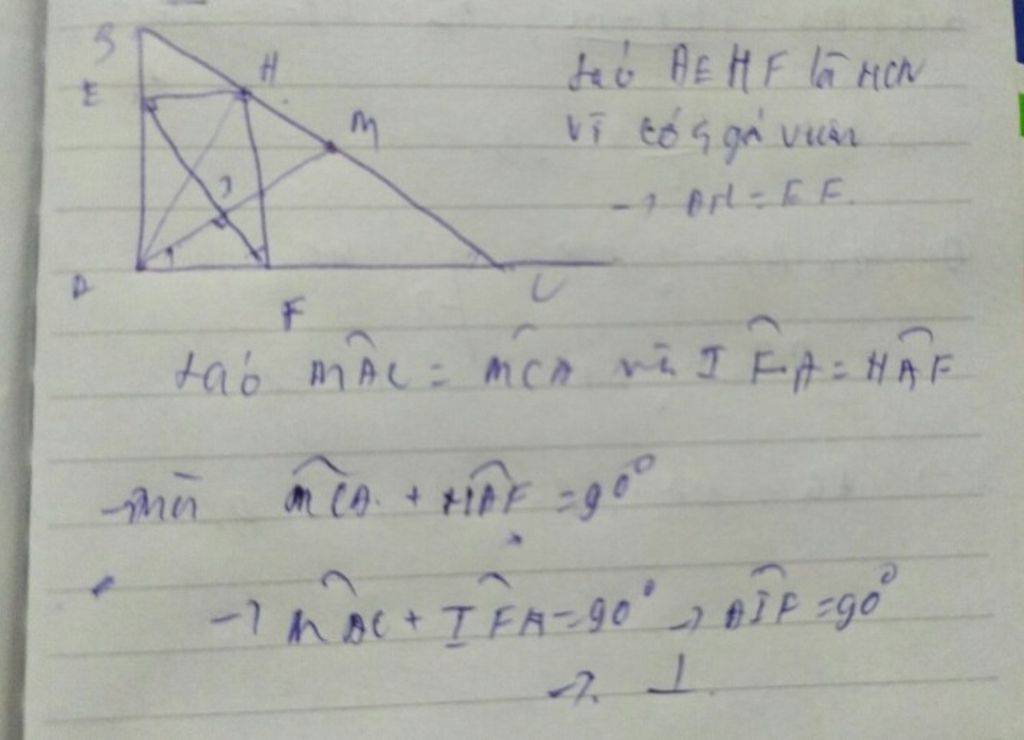 B
H
E
M
I
1
A
F
C
ta có AEHF là HCN
vì có 4 gó vuôn
→ AH = EF.
ta có MAC = MCA và IFA = HAF
→ mà MCA + HAF = 90°
→ MAC + IFA = 90° → AIF = 90°
→ ⊥